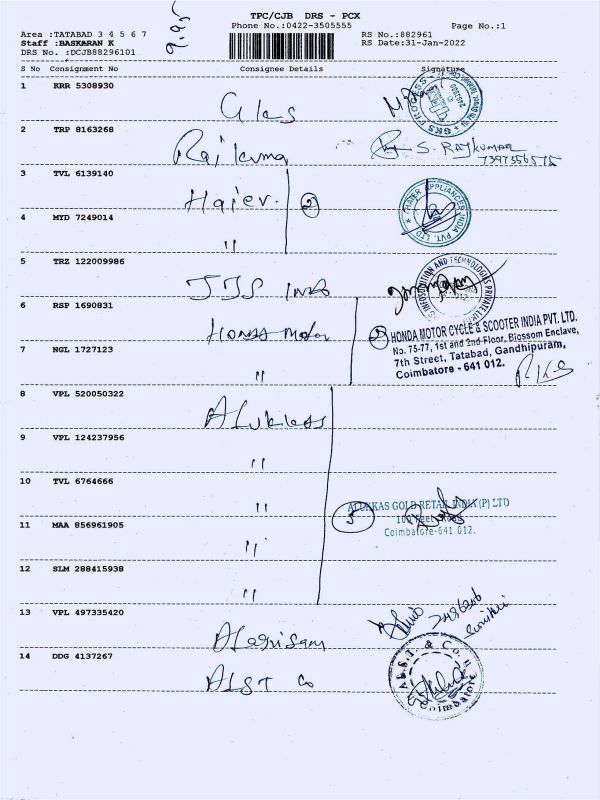 TPC/CJB DRS - PCX
Phone No.:0422-3505555
Page No.:1
Area :TATABAD 3 4 5 6 7
Staff :BASKARAN K
DRS No. :DCJB88296101
RS No.:882961
RS Date:31-Jan-2022
S No Consignment No Consignee Details Signature
1 KRR 5308930
2 TRP 8163268 Raj kuma S. RAJKUMAR
7397556575
3 TVL 6139140 Haier. 2
HAIER APPLIANCES INDIA PVT. LTD.
4 MYD 7249014 "
5 TRZ 122009986
6 RSP 1690831 HONDA Motor
2 HONDA MOTOR CYCLE & SCOOTER INDIA PVT. LTD.
No. 75-77, 1st and 2nd Floor, Blossom Enclave,
7th Street, Tatabad, Gandhipuram,
Coimbatore - 641 012.
7 NGL 1727123 "
8 VPL 520050322
9 VPL 124237956 "
10 TVL 6764666 "
5 ALUKKAS GOLD RETAIL INDIA (P) LTD
100 Feet Road
Coimbatore-641 012.
11 MAA 856961905 "
12 SLM 288415938 "
13 VPL 497335420
14 DDG 4137267 ALST Co